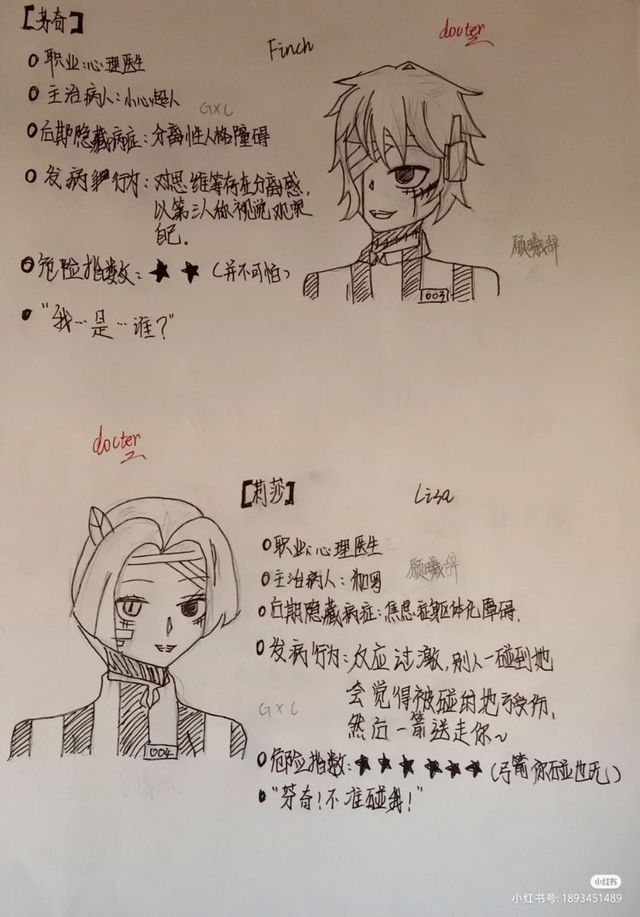 【芬奇】
Finch
docter
职业:心理医生
主治病人:小心超人
GXC
后期隐藏病症:分离性人格障碍
发病时行为:对思维等存在分离感,
以第三人称视觉观察
自己.
顾曦辞
危险指数:★★(并不可怕)
003
"我…是…谁?"
docter
【莉莎】
Lisa
职业:心理医生
顾曦辞
后期隐藏病症:焦虑症躯体化障碍.
发病行为:反应过激,别人一碰到她
会觉得被碰的地方受伤,
然后一箭送走你~
GXC
004
危险指数:★★★★★★(弓箭你碰也死)
"芬奇!不准碰我!"
小红书
小红书号: 1893451489